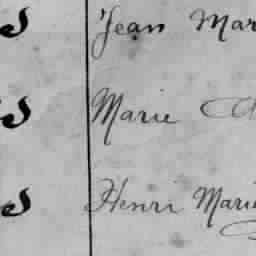 s Jean Mar
s Marie
s Henri Marie